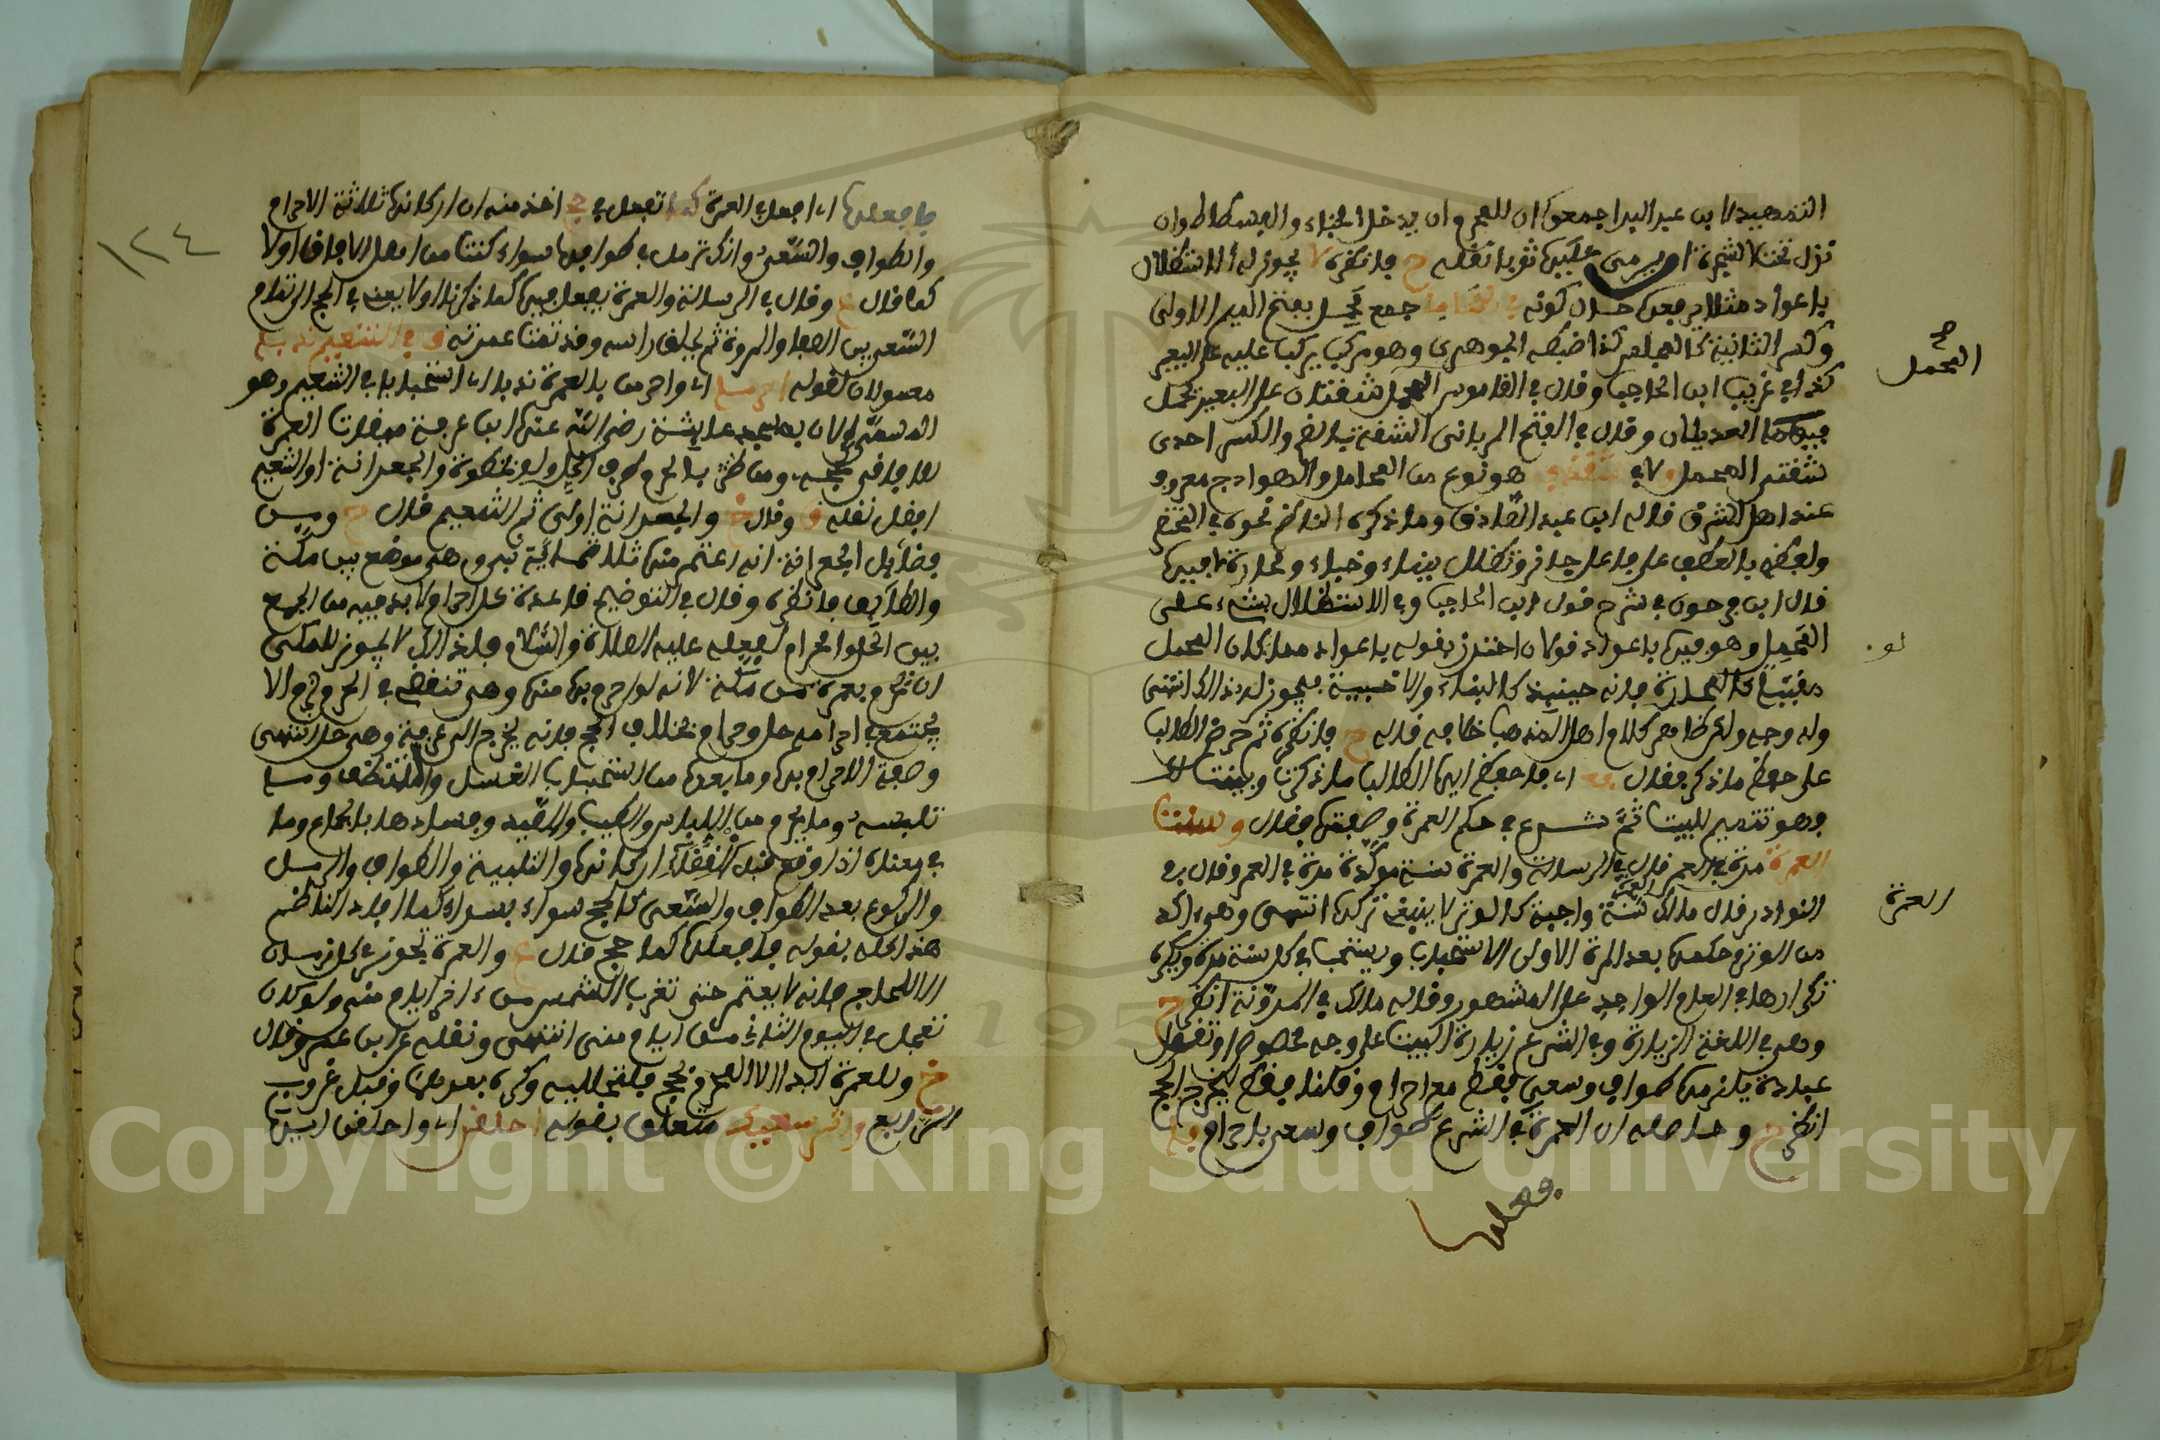 التمهيد لابن عبد البر اجمعوا ان للمحرم ان يدخل الخباء والفسطاط وان
نزل تحت الشجرة ان يرمى عليها ثوبا نقله ح فانظره لا يجوز له الاستظلال
باعواد مثلا يرفعها حال كونه في المحامل جمع محمل بفتح الميم الاولى
وكسر الثانية كالمجلس كذا ضبطه الجوهري وهو مركب يركب عليه على البعير
كذا في غريب ابن الحاجب وقال في القاموس المحمل شقتان على البعير يحمل
فيهما العديلان وقال في الفتح الرباني الشقة بالضم والكسر احدى
شقتي المحمل ولا في شقدف هو نوع من المحامل والهوادج معروف
عند اهل المشرق قاله ابن عبد الصادق وما ذكره الناظم نحوه في المختصر
ولفظه بالعطف على ما على جائز وتظلل ببناء وخباء ومحارة لا فيها
قال ابن فرحون في شرح قول ابن الحاجب وفي الاستظلال بشيء على
المحمل وهو فيها باعواد قولان احترز بقوله باعواد مما لو كان المحمل
مقببا كالمحارة فانه حينئذ كالبناء والاخبية فيجوز له ذلك انتهى
وله وجه ولكن ظاهر كلام اهل المذهب خلافه قاله ح فانظره ثم حرض الطالب
على حفظ ما ذكر فقال فع اي فاحفظ ايها الطالب ما ذكرت وبينت لك
وهو تتميم للبيت ثم شرع في حكم العمرة وصفتها فقال وسنت
العمرة مرة في العمر قال في الرسالة والعمرة سنة مؤكدة مرة في العمر وقال في
النوادر قال مالك العمرة سنة واجبة كالوتر لا ينبغي تركها انتهى وهي اكد
من الوتر وحكمها بعد المرة الاولى الاستحباب ويستحب في كل سنة مرة ويكره
تكرارها في العام الواحد على المشهور وقاله مالك في المدونة انظر ح
وهي في اللغة الزيارة وفي الشرع زيارة البيت على وجه مخصوص او تقول
عبادة يلزمها طواف وسعي فقط مع احرام وقلنا فقط ليخرج الحج
انظر ح وحاصله ان العمرة في الشرع طواف وسعي باحرام فا
فعلها
المحمل
العمرة
١٢٤
فافعلها اي افعل العمرة كما تفعل في حج اخذ منه ان اركانها ثلاثة الاحرام
والطواف والسعي وانك ترمل في طوافها سواء كنت من اهل الافاق اولا
كما قال ع وقال في الرسالة والعمرة يفعل فيها كما ذكرنا اولا يعني في الحج الى تمام
السعي بين الصفا والمروة ثم يحلق راسه وقد تمت عمرته وفي التنعيم ندبا
معمولان لقوله احرما اي واحرمن بالعمرة ندبا اي استحبابا في التنعيم وهو
المسمى الان بمساجد عائشة رضي الله عنها ابن عرفة ميقات العمرة
للافاقي كحجه ومن بالحرم طرف الحل ولو بخطوة والجعرانة او التنعيم
افضل نقله ق وقال خ والجعرانة اولى ثم التنعيم قال ح ومن
فضائل الجعرانة انه اعتمر منها ثلاثمائة نبي وهي موضع بين مكة
والطائف فانظره وقال في التوضيح قاعدة كل احرام لا بد فيه من الجمع
بين الحل والحرم لفعله عليه الصلاة والسلام فلذلك لا يجوز للمكي
ان يحرم بعمرة من مكة لانه لو احرم بها منها وهي تنقضي في الحرم لم
يجتمع في احرامه حل وحرم بخلاف الحج فانه يخرج الى عرفة وهي حل انتهى
وصفة الاحرام بها وما بعدها من استحباب الغسل والتنظف وما
تلبسه وما يحرم من اللباس والطيب والصيد وفسادها بالجماع وما
في معناه اذا وقع قبل انقضاء اركانها والتلبية والطواف والرمل
والركوع بعد الطواف والسعي كالحج سواء بسواء كما افاد الناظم
هذا كله بقوله فافعلها كما حج قال ع والعمرة تجوز في كل زمان
الا للحاج فانه لا يعتمر حتى تغرب الشمس من اخر ايام منى ولو كان
تعجل في اليوم الثاني من ايام منى انتهى ونقله عن ابن عمر وقال
خ وللعمرة ابدا الا لمحرم بحج فلتحلله وكره بعدهما وقبل غروب
الرابع واثر سعيك متعلق بقوله احلقن اي واحلقن ايها